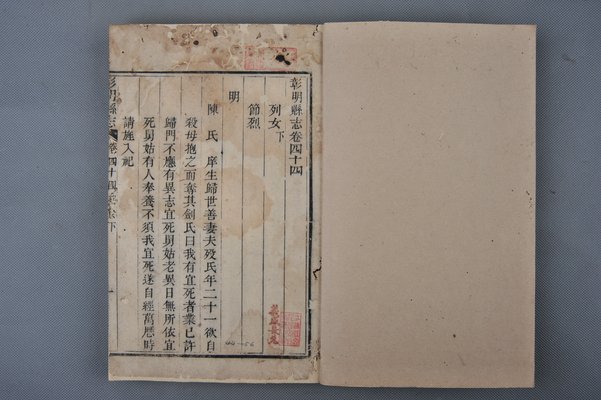 彰明縣志卷四十四
列女下
節烈
明
陳氏 庠生歸世善妻夫殁氏年二十一欲自
殺母抱之而奪其劍氏曰我有宜死者業已許
歸門不應有異志宜死舅姑老異日無所依宜
死舅姑有人奉養不須我宜死遂自經萬厯時
請旌入祀
彰明縣志 卷四十四 列女下
44—56